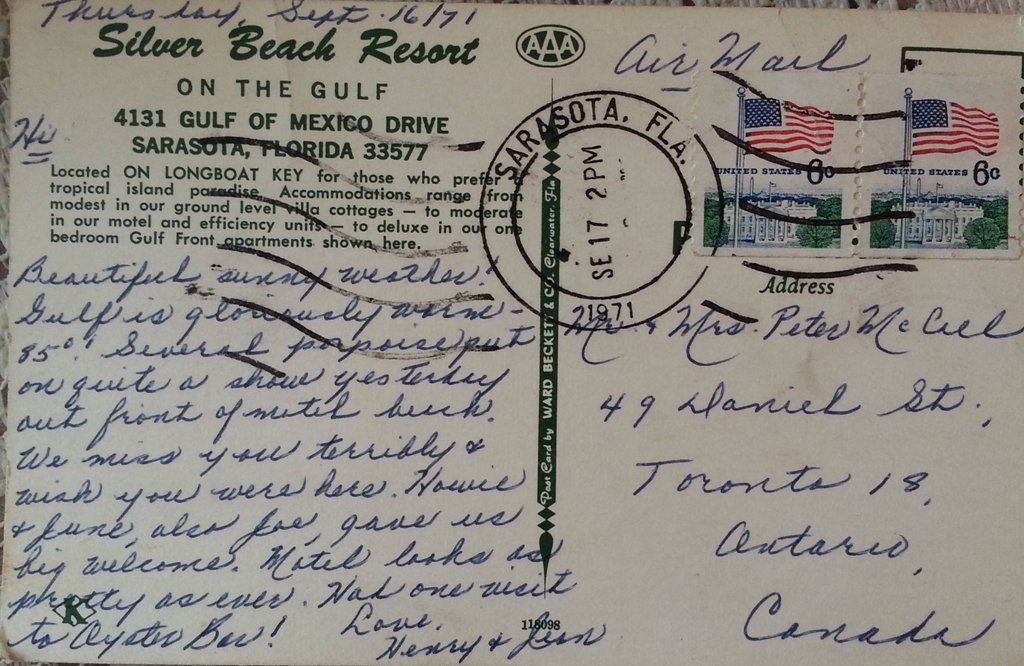 Thursday, Sept. 16/71
Silver Beach Resort
ON THE GULF
4131 GULF OF MEXICO DRIVE
SARASOTA, FLORIDA 33577
Hi
Located ON LONGBOAT KEY for those who prefer a
tropical island paradise. Accommodations range from
modest in our ground level villa cottages — to moderate
in our motel and efficiency units — to deluxe in our one
bedroom Gulf Front apartments shown here.
Beautiful sunny weather!
Gulf is gloriously warm -
85°! Several porpoise put
on quite a show yesterday
out front of motel beach.
We miss you terribly &
wish you were here. Howie
& June, also Joe, gave us
big welcome. Motel looks as
pretty as ever. Had one visit
to Oyster Bar!
Love,
Henry & Jean
K
AAA
Post Card by WARD BECKETT & CO. Clearwater, Fla.
118098
Air Mail
SARASOTA, FLA.
SE 17 2 PM
1971
UNITED STATES 6c
UNITED STATES 6c
Address
Mr & Mrs. Peter McCall
49 Daniel St.,
Toronto 18,
Ontario,
Canada